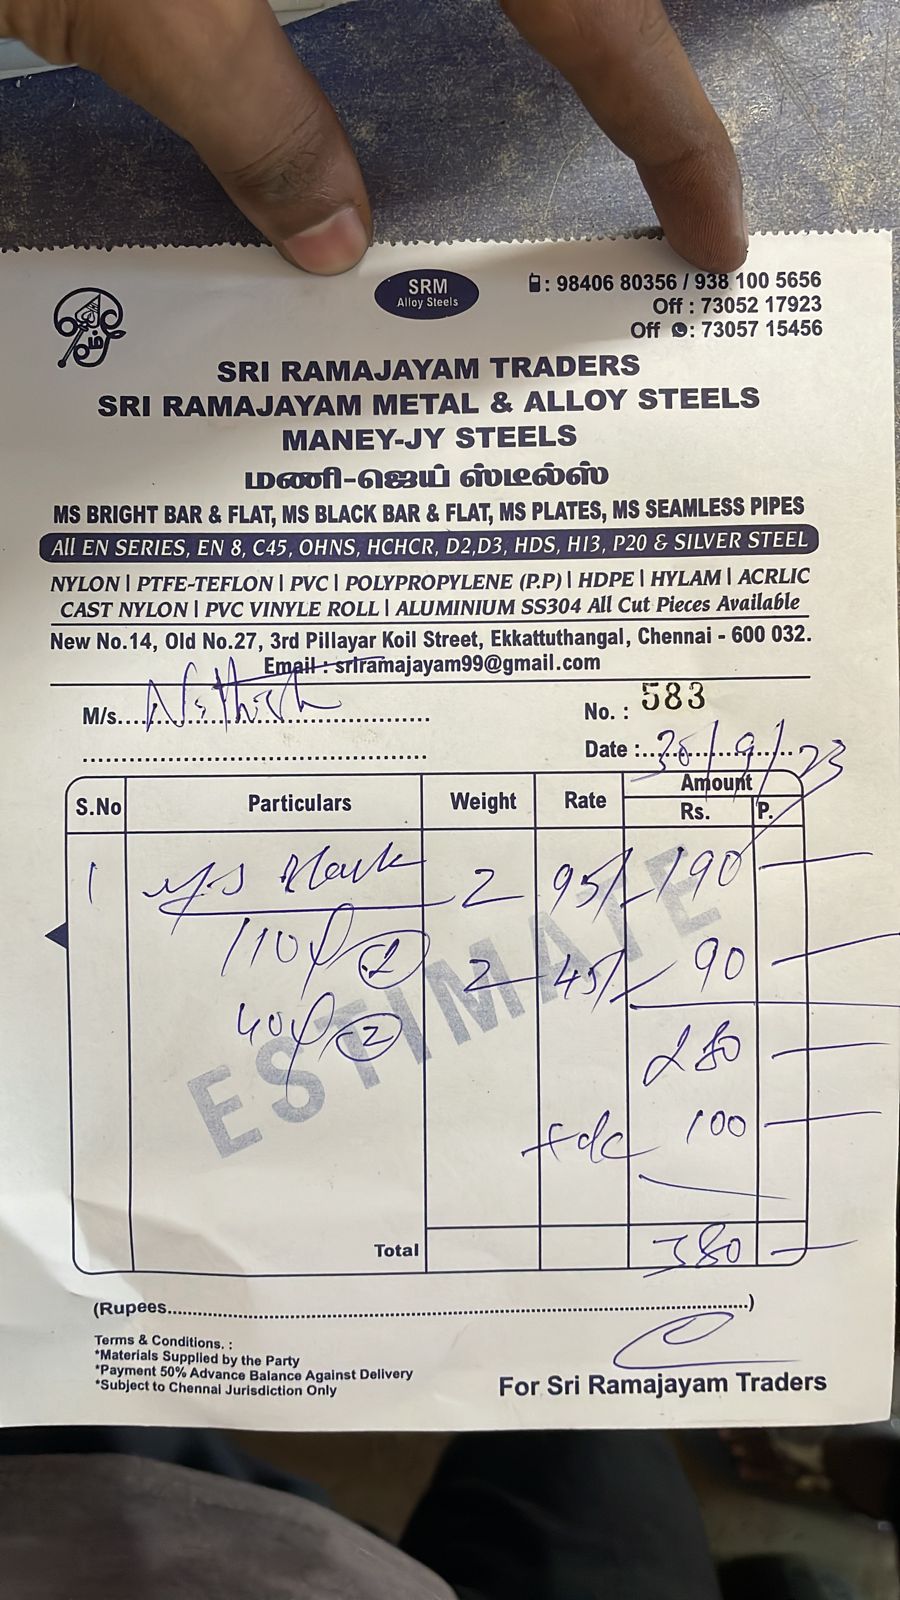 SRM
Alloy Steels
: 98406 80356 / 938 100 5656
Off : 73052 17923
Off : 73057 15456
SRI RAMAJAYAM TRADERS
SRI RAMAJAYAM METAL & ALLOY STEELS
MANEY-JY STEELS
மணி-ஜெய் ஸ்டீல்ஸ்
MS BRIGHT BAR & FLAT, MS BLACK BAR & FLAT, MS PLATES, MS SEAMLESS PIPES
All EN SERIES, EN 8, C45, OHNS, HCHCR, D2,D3, HDS, H13, P20 & SILVER STEEL
NYLON | PTFE-TEFLON | PVC | POLYPROPYLENE (P.P) | HDPE | HYLAM | ACRLIC
CAST NYLON | PVC VINYLE ROLL | ALUMINIUM SS304 All Cut Pieces Available
New No.14, Old No.27, 3rd Pillayar Koil Street, Ekkattuthangal, Chennai - 600 032.
Email : sriramajayam99@gmail.com
M/s. Nithish No. : 583
Date : 30/9/23
S.No Particulars Weight Rate Amount
Rs. P.
1 M/S Black 2 95/- 190 —
110φ 2 2 45/- 90 —
40φ 2
280 —
100 —
ESTIMATE
Total 380 —
(Rupees..........)
Terms & Conditions. :
*Materials Supplied by the Party
*Payment 50% Advance Balance Against Delivery
*Subject to Chennai Jurisdiction Only
For Sri Ramajayam Traders